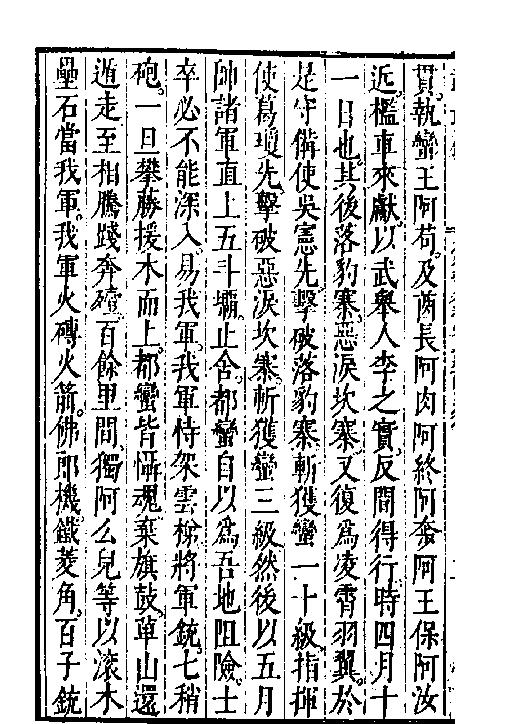 貫。執蠻王阿苟。及酋長阿肉阿終阿奓阿王保阿汝
近。檻車來獻。以武舉人李之實。反間得行。時四月十
一日也。其後落豹寨。惡淚坎寨。又復為凌霄羽翼。於
是守備使吳憲先。擊破落豹寨。斬獲蠻一十級。指揮
使葛瓊先。擊破惡淚坎寨。斬獲蠻三級。然後以五月
帥諸軍直上五斗壩。止舍。都蠻自以為吾地阻險。士
卒必不能深入。易我軍。我軍恃架雲梯將軍銃。七稍
砲。一旦攀藤援木而上。都蠻皆懾魂。棄旗鼓。單山還
遁走。至相騰踐奔殪。百餘里間。獨阿么兒等以滾木
壘石當我軍。我軍火磚火箭。佛郎機鐵菱角。百子銃